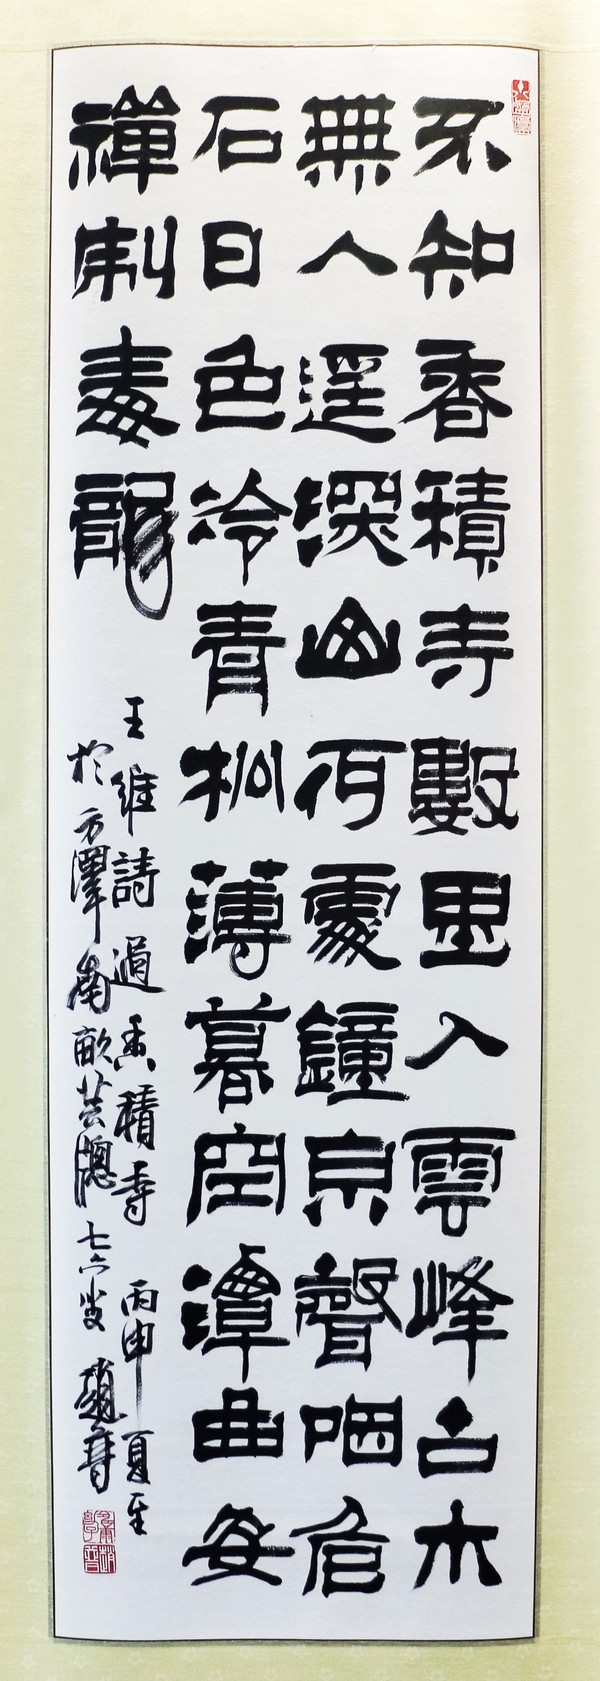 不知香積寺數里入雲峰古木
無人逕深山何處鐘泉聲咽危
石日色冷青松薄暮空潭曲安
禪制毒龍
王維詩過香積寺 丙申夏至
於方潭南畝芸牕七六叟趙